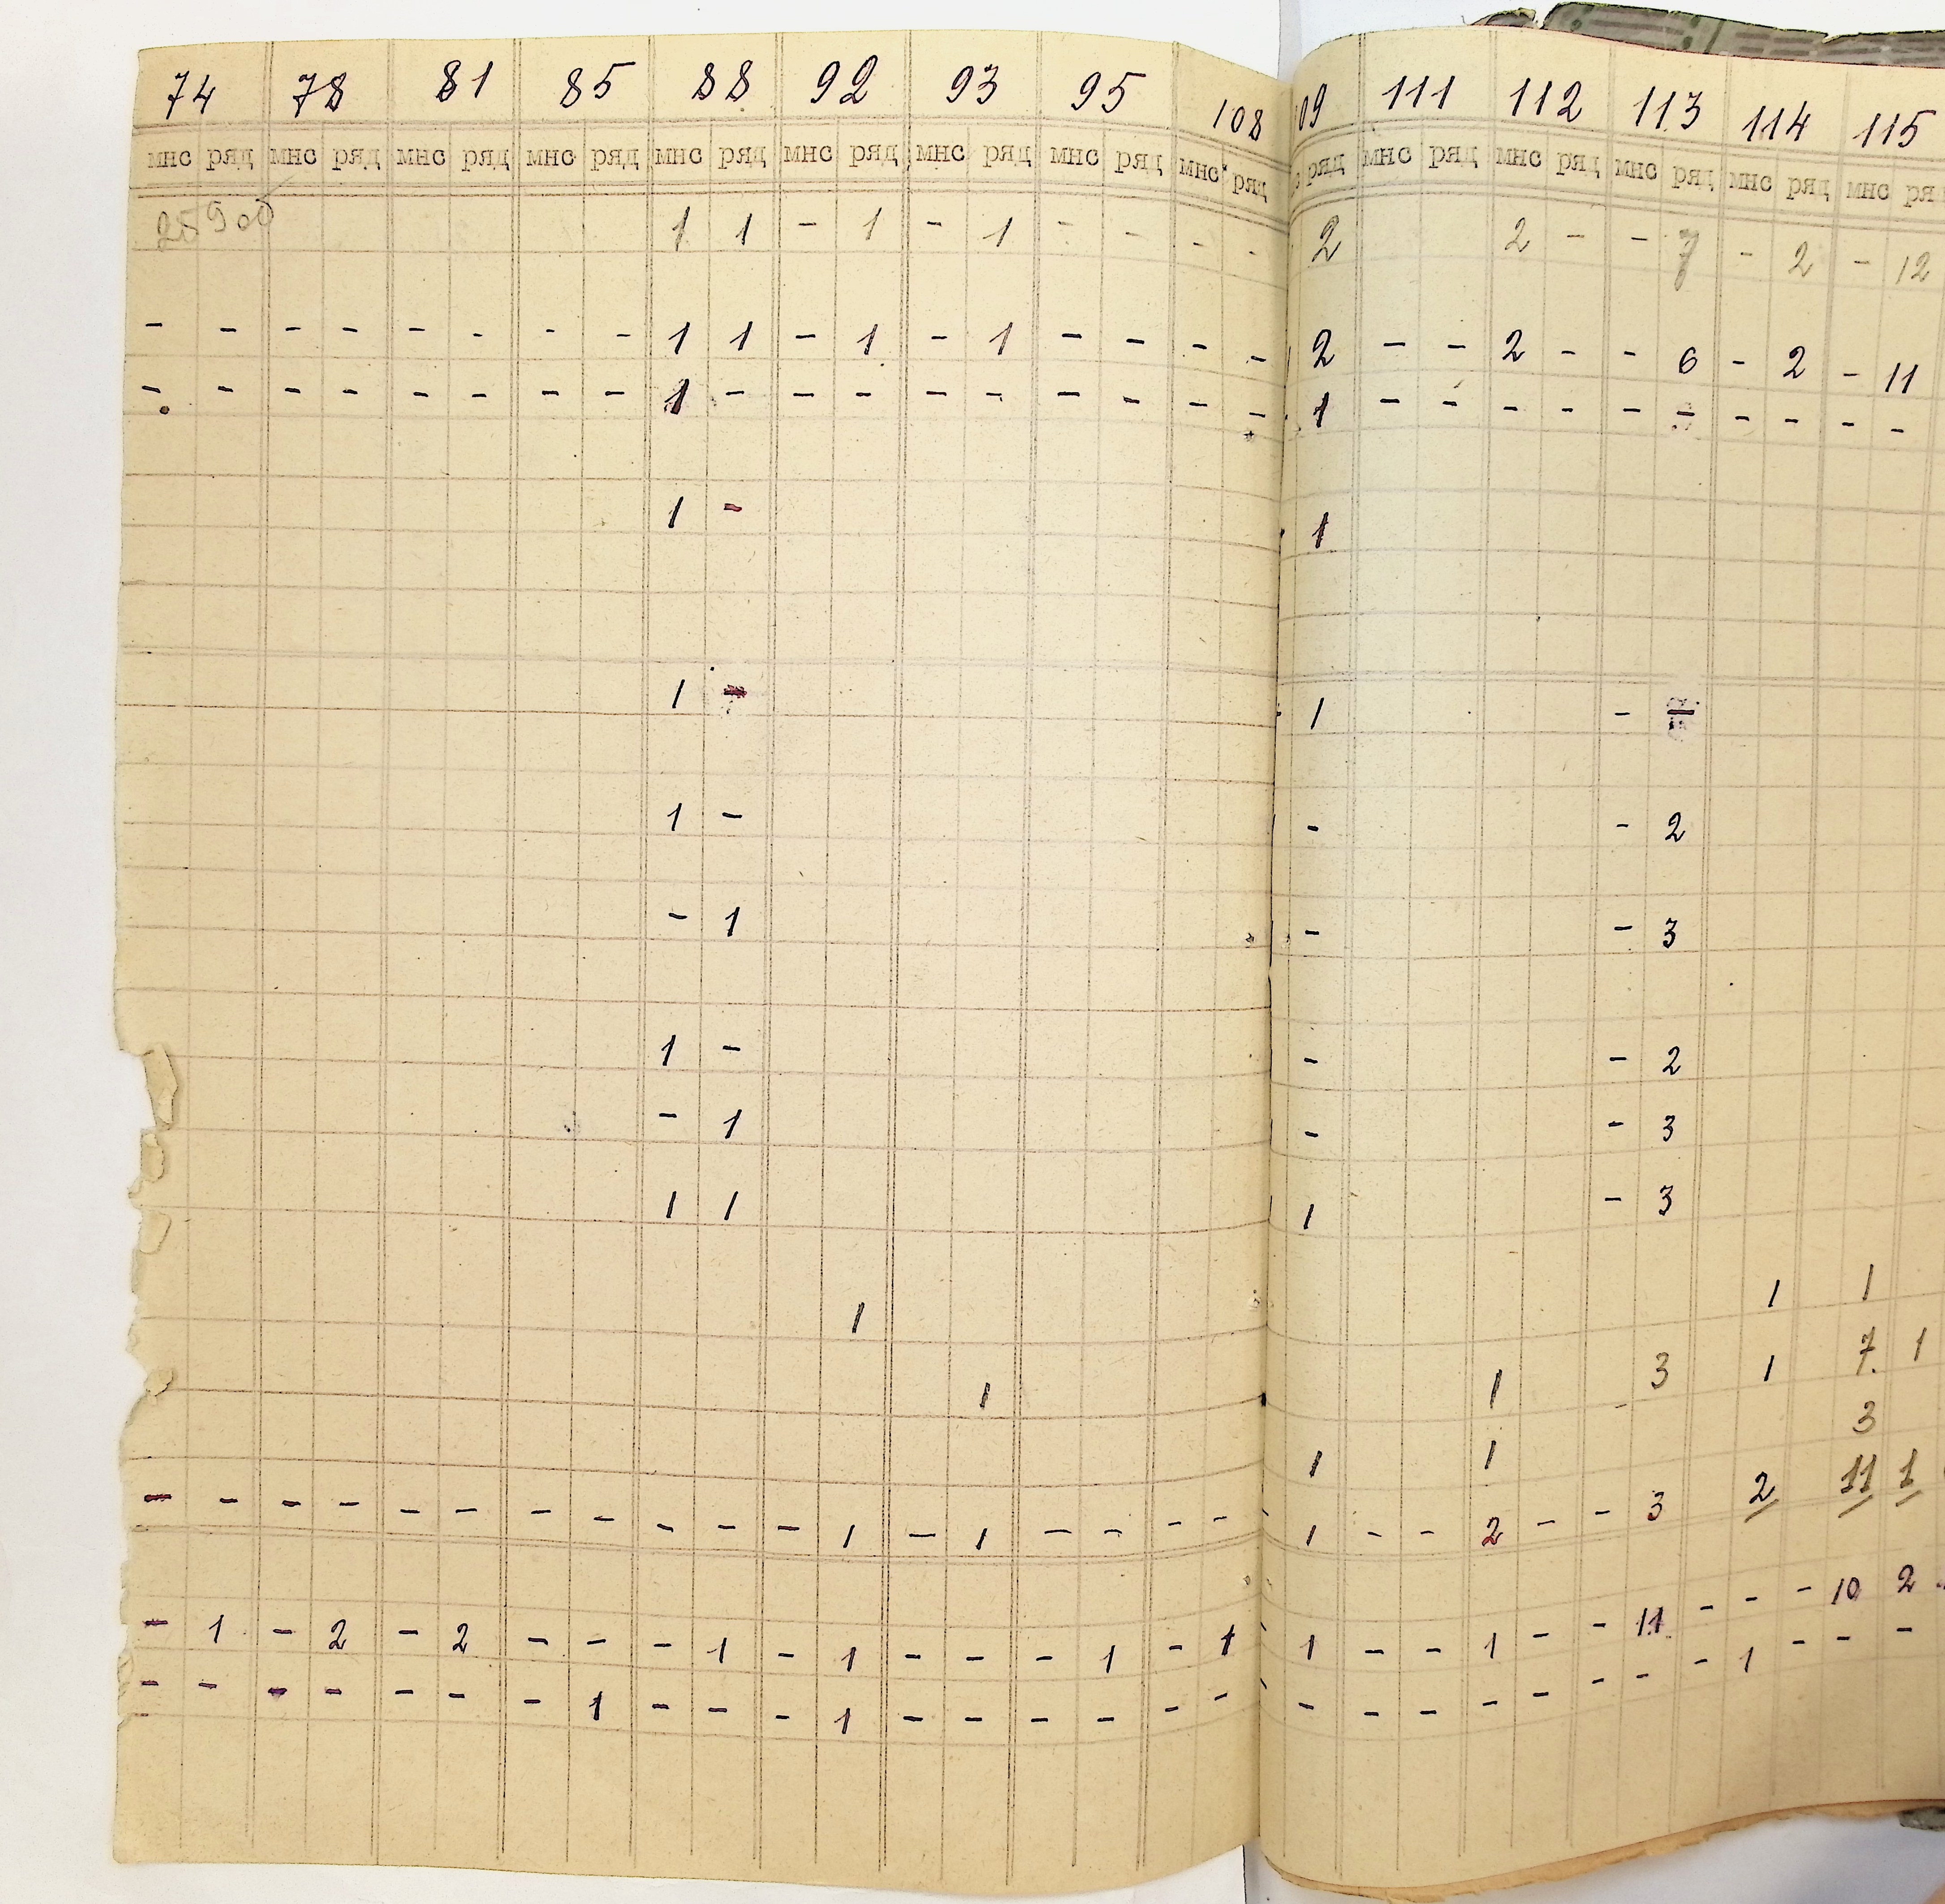 74 78 81 85 88 92 93 95 108 109 111 112 113 114 115
мнс ряд мнс ряд мнс ряд мнс ряд мнс ряд мнс ряд мнс ряд мнс ряд мнс ряд с ряд мнс ряд мнс ряд мнс ряд мнс ряд мнс ря
1 1 - 1 - 1 - - - - 2 2 - - 7 - 2 - 12
- - - - - - - - 1 1 - 1 - 1 - - - - 2 - - 2 - - 6 - 2 - 11
- - - - - - - - 1 - - - - - - - - - 1 - - - - - - - - - -
1 - 1
1 - 1 -
1 - - - 2
- 1 - - 3
1 - - - 2
- 1 - - 3
1 1 1 - 3
1 1 1
1 1 3 1 7 1
1 1 3
- - - - - - - - - - - 1 - 1 - - - - 1 - - 2 - - 3 2 11 1
- 1 - 2 - 2 - - - 1 - 1 - - - 1 - 1 1 - - 1 - - 11 - - - 10 2
- - - - - - - 1 - - - 1 - - - - - - - - - - - - - - 1 - - -